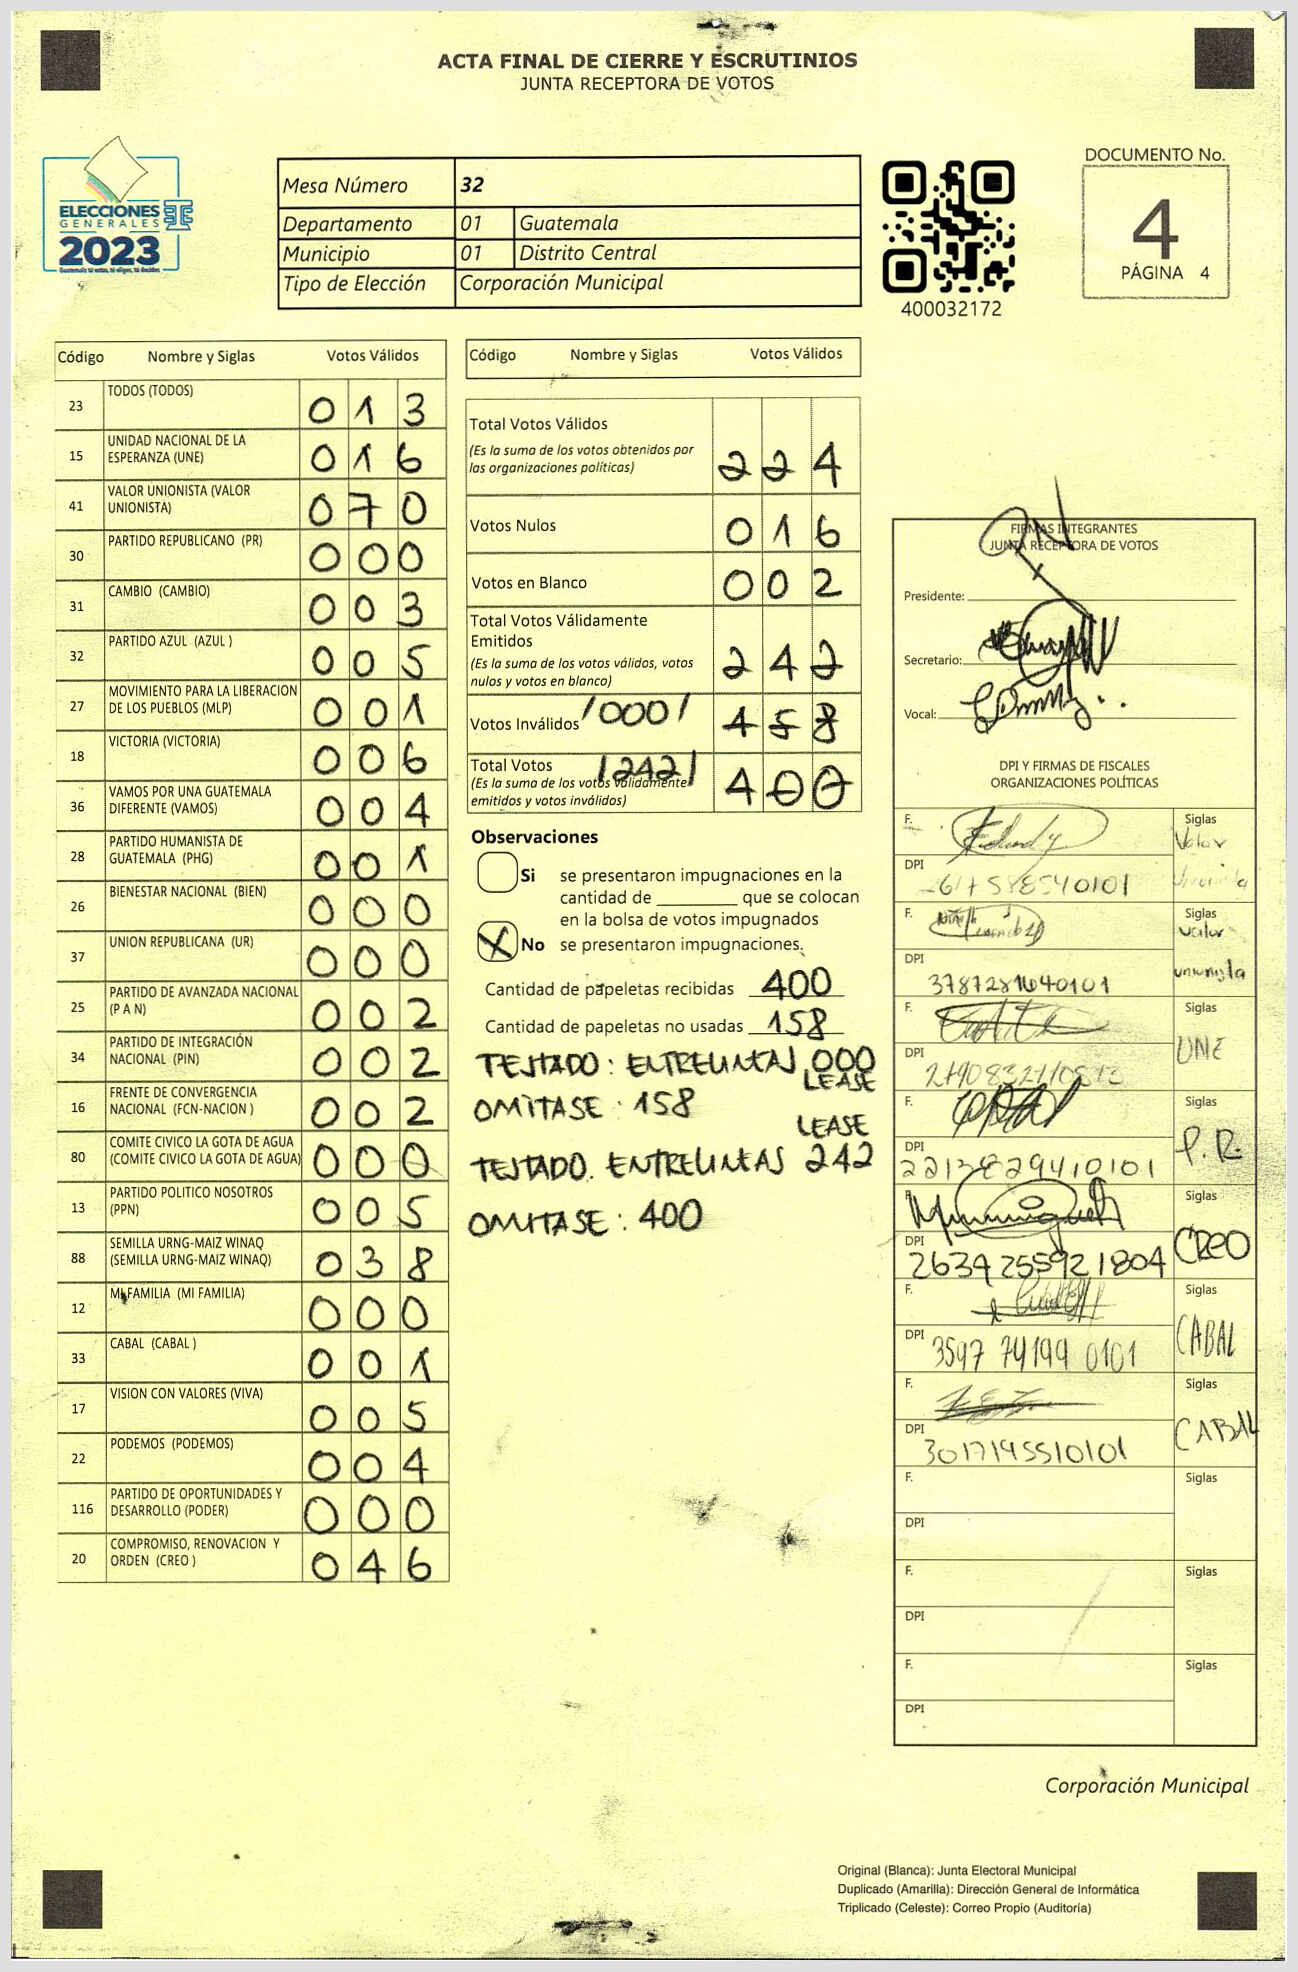 ACTA FINAL DE CIERRE Y ESCRUTINIOS
JUNTA RECEPTORA DE VOTOS
ELECCIONES
GENERALES
2023
Mesa Número 32
Departamento 01 Guatemala
Municipio 01 Distrito Central
Tipo de Elección Corporación Municipal
400032172
DOCUMENTO No.
4
PÁGINA 4
Código Nombre y Siglas Votos Válidos
23 TODOS (TODOS) 0 1 3
15 UNIDAD NACIONAL DE LA
ESPERANZA (UNE) 0 1 6
41 VALOR UNIONISTA (VALOR
UNIONISTA) 0 7 0
30 PARTIDO REPUBLICANO (PR) 0 0 0
31 CAMBIO (CAMBIO) 0 0 3
32 PARTIDO AZUL (AZUL ) 0 0 5
27 MOVIMIENTO PARA LA LIBERACION
DE LOS PUEBLOS (MLP) 0 0 1
18 VICTORIA (VICTORIA) 0 0 6
36 VAMOS POR UNA GUATEMALA
DIFERENTE (VAMOS) 0 0 4
28 PARTIDO HUMANISTA DE
GUATEMALA (PHG) 0 0 1
26 BIENESTAR NACIONAL (BIEN) 0 0 0
37 UNION REPUBLICANA (UR) 0 0 0
25 PARTIDO DE AVANZADA NACIONAL
(P A N) 0 0 2
34 PARTIDO DE INTEGRACIÓN
NACIONAL (PIN) 0 0 2
16 FRENTE DE CONVERGENCIA
NACIONAL (FCN-NACION ) 0 0 2
80 COMITE CIVICO LA GOTA DE AGUA
(COMITE CIVICO LA GOTA DE AGUA) 0 0 0
13 PARTIDO POLITICO NOSOTROS
(PPN) 0 0 5
88 SEMILLA URNG-MAIZ WINAQ
(SEMILLA URNG-MAIZ WINAQ) 0 3 8
12 MI FAMILIA (MI FAMILIA) 0 0 0
33 CABAL (CABAL ) 0 0 1
17 VISION CON VALORES (VIVA) 0 0 5
22 PODEMOS (PODEMOS) 0 0 4
116 PARTIDO DE OPORTUNIDADES Y
DESARROLLO (PODER) 0 0 0
20 COMPROMISO, RENOVACION Y
ORDEN (CREO ) 0 4 6
Código Nombre y Siglas Votos Válidos
Total Votos Válidos
(Es la suma de los votos obtenidos por
las organizaciones políticas) 2 2 4
Votos Nulos 0 1 6
Votos en Blanco 0 0 2
Total Votos Válidamente
Emitidos
(Es la suma de los votos válidos, votos
nulos y votos en blanco) 2 4 2
Votos Inválidos /000/
Total Votos /242/
(Es la suma de los votos válidamente
emitidos y votos inválidos) 4 0 0
Observaciones
Si se presentaron impugnaciones en la
cantidad de ________ que se colocan
en la bolsa de votos impugnados
X No se presentaron impugnaciones.
Cantidad de papeletas recibidas 400
Cantidad de papeletas no usadas 158
TESTADO: ENTRELINEAS 000
LEASE
OMITASE: 158
LEASE
TESTADO. ENTRELINEAS 242
OMITASE: 400
FIRMAS INTEGRANTES
JUNTA RECEPTORA DE VOTOS
Presidente:
Secretario:
Vocal:
DPI Y FIRMAS DE FISCALES
ORGANIZACIONES POLÍTICAS
F. Siglas
Valor
DPI
F. Siglas
valor
DPI unionista
F. Siglas
UNE
DPI
F. Siglas
P.R.
DPI 2213829410101
F. Siglas
CREO
DPI 2634255921804
F. Siglas
CABAL
DPI 3597 74199 0101
F. Siglas
CABAL
DPI 3017195510101
F. Siglas
DPI
F. Siglas
DPI
F. Siglas
DPI
Corporación Municipal
Original (Blanca): Junta Electoral Municipal
Duplicado (Amarilla): Dirección General de Informática
Triplicado (Celeste): Correo Propio (Auditoría)